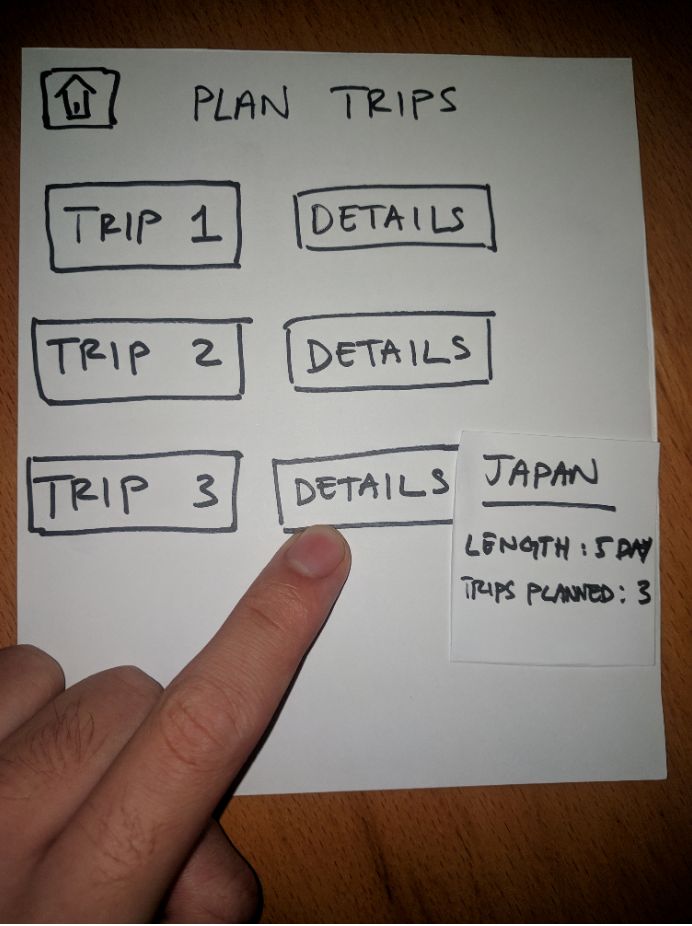 PLAN TRIPS
TRIP 1 DETAILS
TRIP 2 DETAILS
TRIP 3 DETAILS
JAPAN
LENGTH : 5 DAY
TRIPS PLANNED : 3